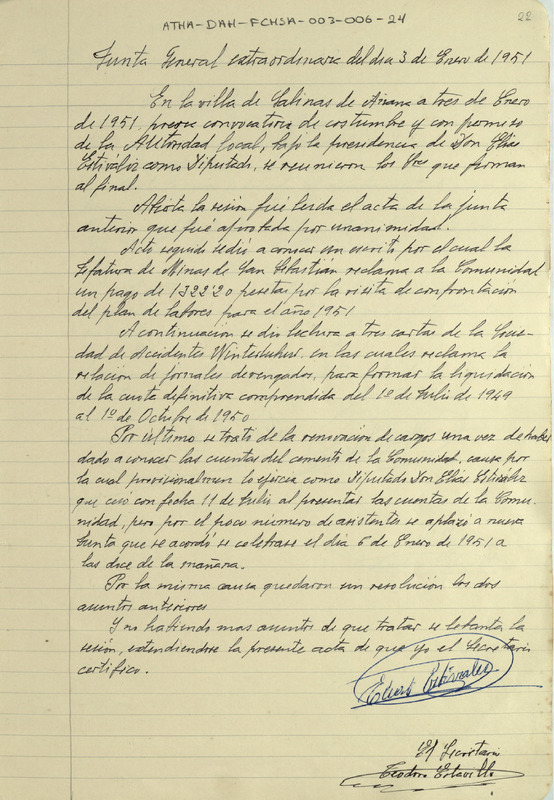 ATHA-DAH-FCHSA-003-006-24
22
Junta General extraordinaria del dia 3 de Enero de 1951
En la villa de Salinas de Añana a tres de Enero
de 1951, previa convocatoria de costumbre y con permiso
de la Autoridad local, bajo la presidencia de Don Elías
Estíbaliz como Diputado, se reunieron los Sres que firman
al final.
Abierta la sesión fué leida el acta de la junta
anterior que fué aprobada por unanimidad.
Acto seguido se dió a conocer un escrito por el cual la
Jefatura de Minas de San Sebastián reclama a la Comunidad
un pago de 1322'20 pesetas por la visita de confrontación
del plan de labores para el año 1951
A continuación se dio lectura a tres cartas de la Socie-
dad de accidentes Winterthur, en las cuales reclama la
relacion de jornales devengados, para formar la liquidación
de la cuota definitiva comprendida del 1º de Julio de 1949
al 1º de Octubre de 1950
Por último se trató de la renovación de cargos una vez de haber
dado a conocer las cuentas del cemento de la Comunidad, causa por
la cual provisionalmen lo ejercia como Diputado Don Elías Estíbaliz
que cesó con fecha 11 de Julio al presentar las cuentas de la Comu-
nidad, pero por el poco número de asistentes se aplazó a nueva
Junta que se acordó se celebrase el día 6 de Enero de 1951 a
las doce de la mañana.
Por la misma causa quedaron sin resolución los dos
asuntos anteriores
Y no habiendo mas asuntos de que tratar se levanta la
sesión, extendiendose la presente acta de que yo el Secretario
certifico.
El Secretario
Teodoro Estavillo